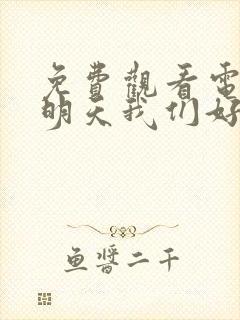 免費觀看電
明天我们好
鱼醬二千